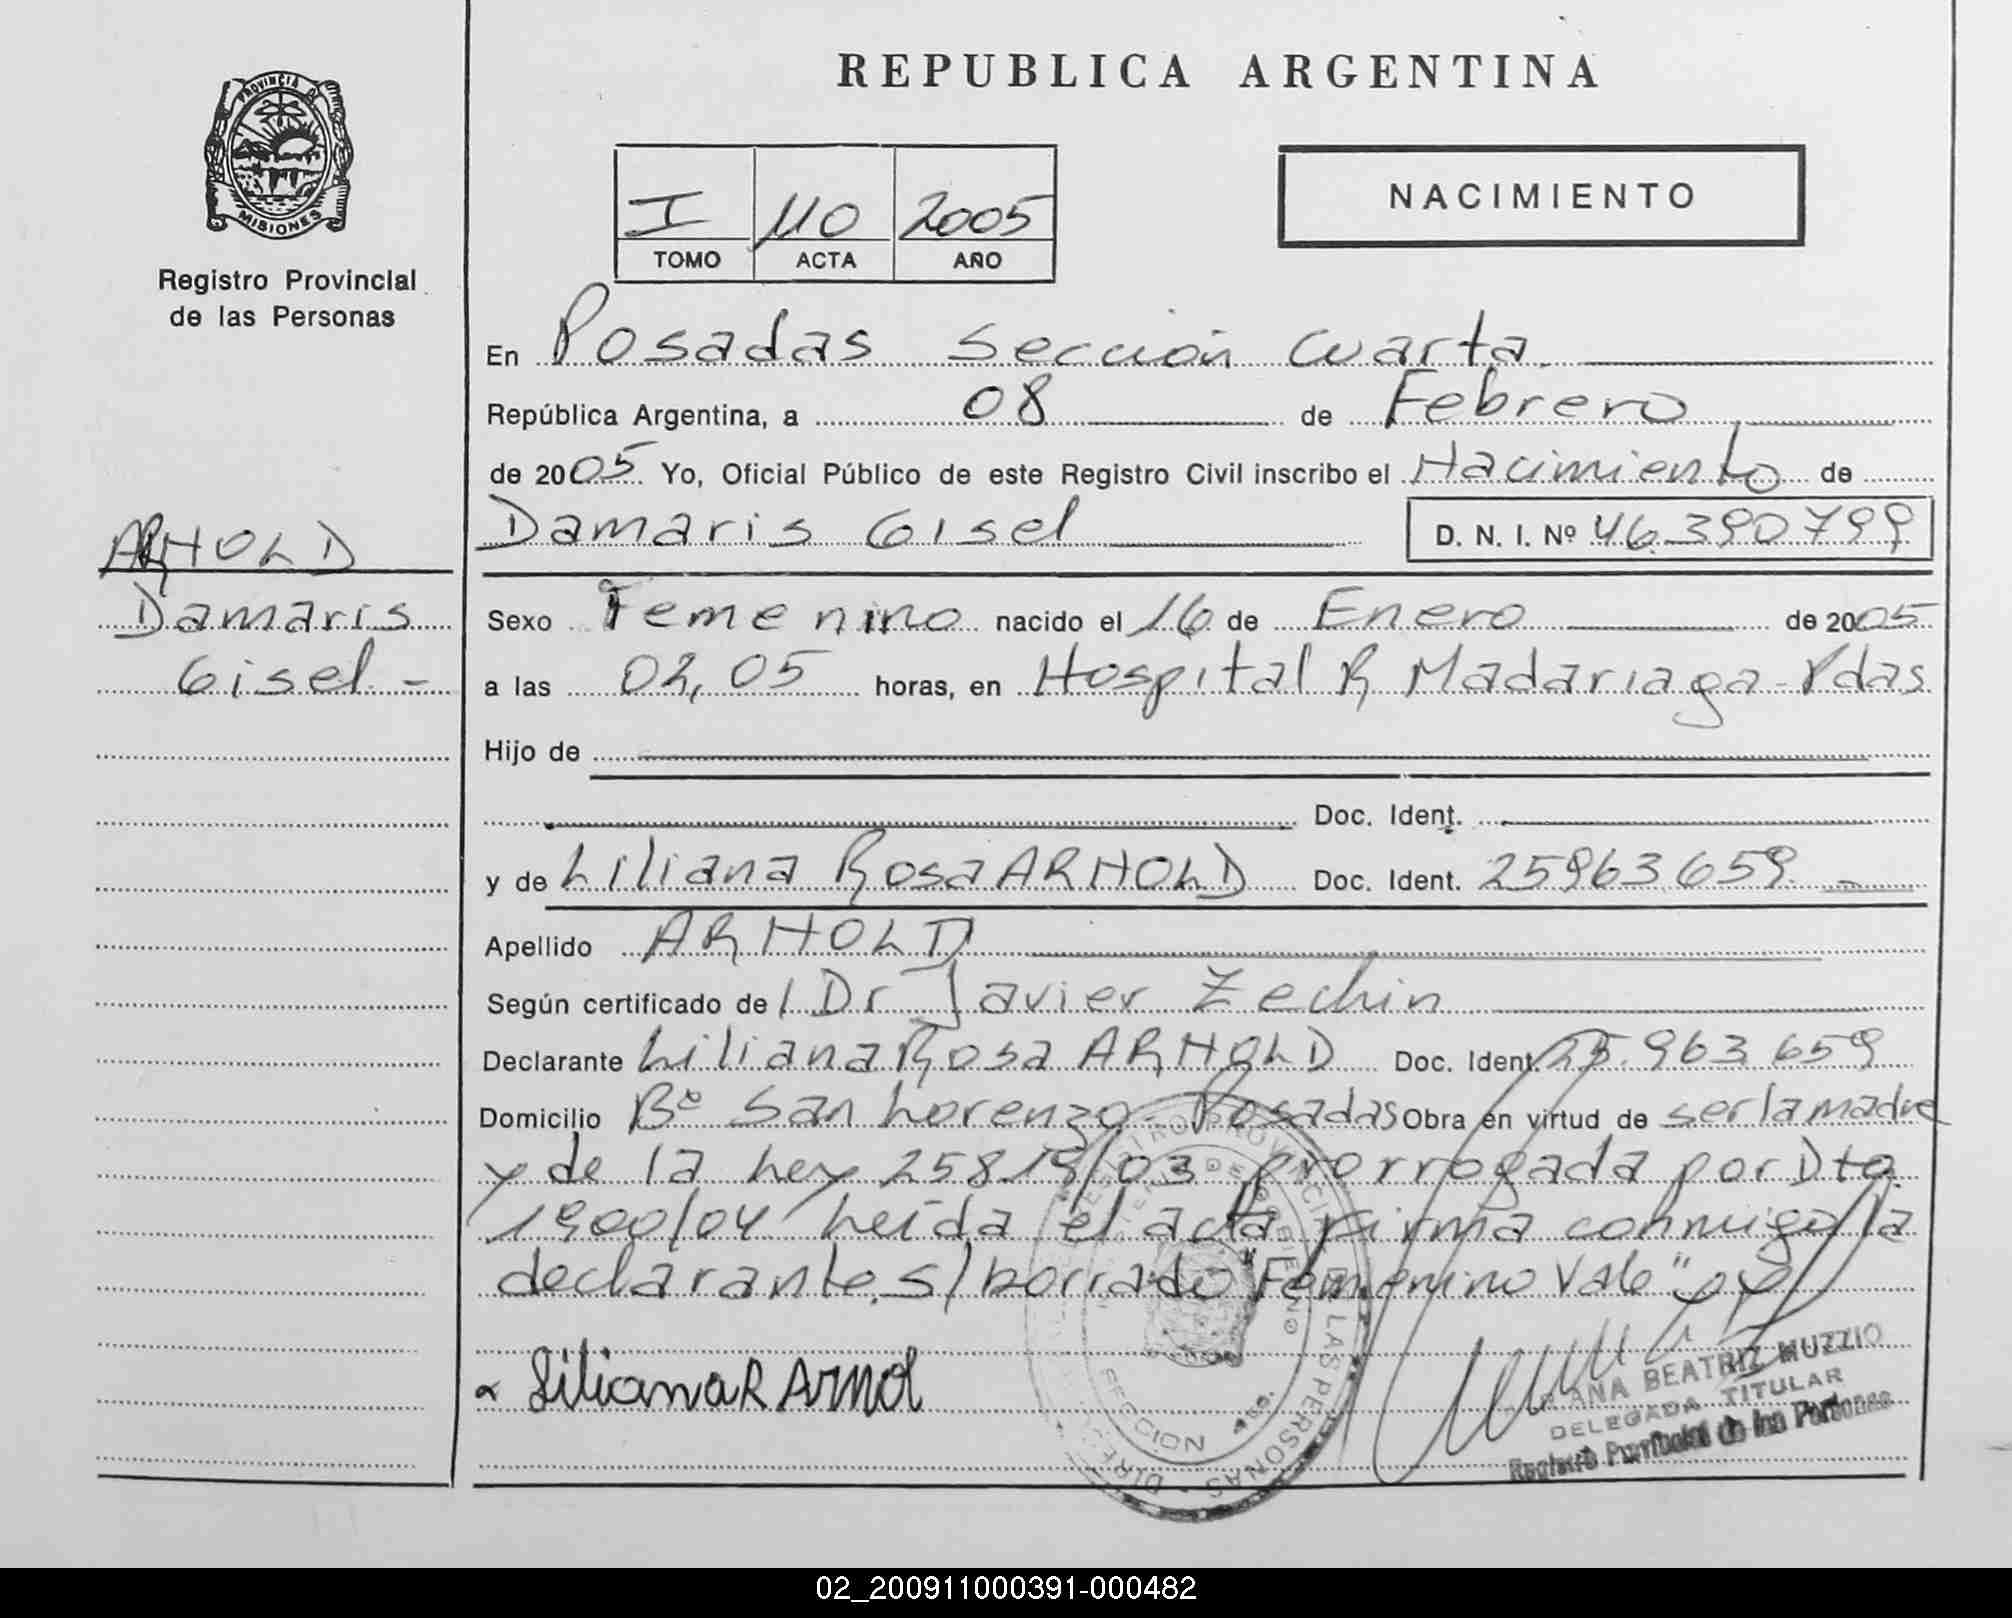 REPUBLICA ARGENTINA
PROVINCIA DE
MISIONES
Registro Provincial
de las Personas
I 110 2005
TOMO ACTA AÑO
NACIMIENTO
En Posadas Sección Cuarta
República Argentina, a 08 de Febrero
de 2005 Yo, Oficial Público de este Registro Civil inscribo el Nacimiento de
Damaris Gisel D. N. I. Nº 46.390799
ARNOLD
Damaris
Gisel -
Sexo Femenino nacido el 16 de Enero de 2005
a las 02,05 horas, en Hospital R Madariaga - Pdas
Hijo de
Doc. Ident.
y de Liliana Rosa ARNOLD Doc. Ident. 25963659
Apellido ARNOLD
Según certificado de l Dr Javier Zechin
Declarante Liliana Rosa ARNOLD Doc. Ident. 25.963 659
Domicilio Bº San Lorenzo - Posadas Obra en virtud de ser la madre
y de la Ley 25819/03 prorrogada por Dto
1900/04 Leída el acta firma conmigo la
declarante s/borrado "Femenino Vale"
Liliana R Arnol
ANA BEATRIZ MUZZIO
DELEGADA TITULAR
Registro Provincial de las Personas
02_200911000391-000482